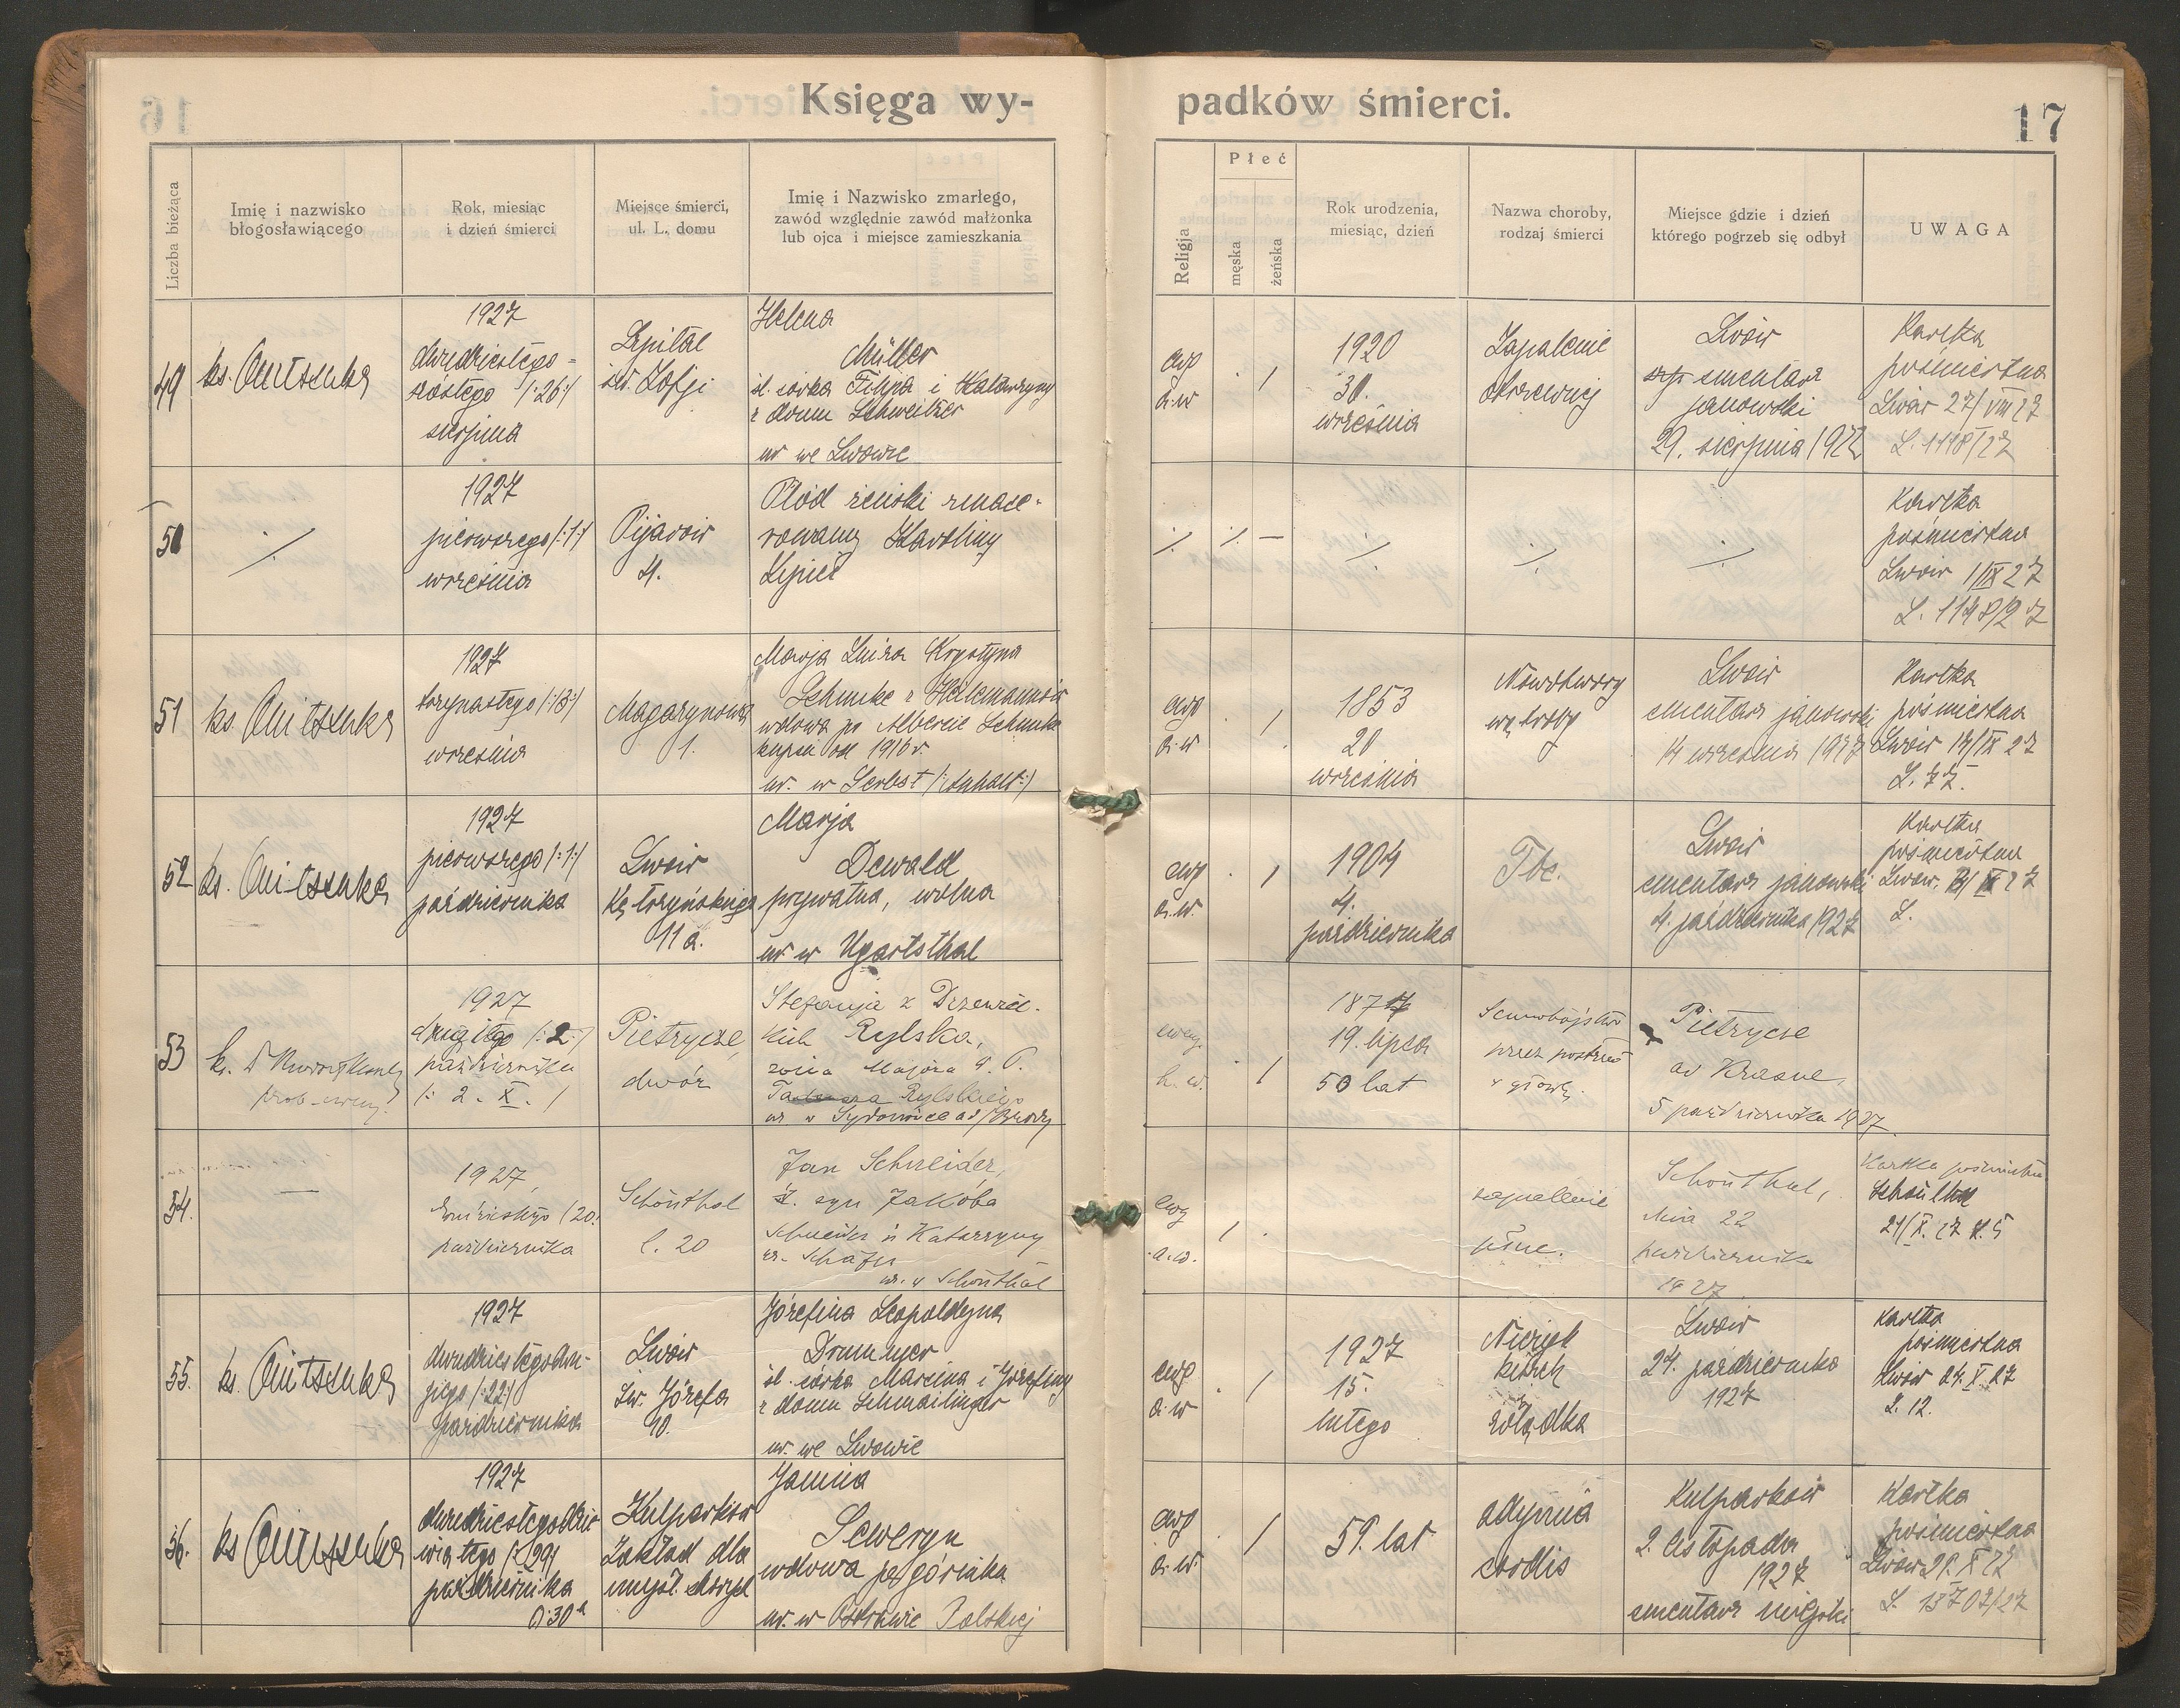 Księga wy-
padków śmierci.
17
Liczba bieżąca
Imię i nazwisko
błogosławiącego
Rok, miesiąc
i dzień śmierci
Miejsce śmierci,
ul. L. domu
Imię i Nazwisko zmarłego,
zawód względnie zawód małżonka
lub ojca i miejsce zamieszkania
Religja
Płeć
męska
żeńska
Rok urodzenia,
miesiąc, dzień
Nazwa choroby,
rodzaj śmierci
Miejsce gdzie i dzień
którego pogrzeb się odbył
UWAGA
49
ks.
1927
dwudziestego-
szóstego /:26:/
sierpnia
Szpital
św. Zofji
Helena
Müller
śl. córka Filipa i Katarzyny
z domu Schweitzer
ur we Lwowie
ewg
a.w
1920
30.
września
Zapalenie
otrzewnej
Lwów
cmentarz
janowski
29. sierpnia 1927
Kartka
pośmiertna
Lwów 27/VIII 27
L. 1118/27
50
1927
pierwszego /:1:/
września
Pijarów
4.
Płód żeński zmace-
rowany Karoliny
Kartka
pośmiertna
Lwów 1/IX 27
L. 1148/27
51
ks.
1927
trzynastego /:13:/
września
Magazynowa
1.
Marja Luiza Krystyna
wdowa po Albercie
kupcu od 1916 r.
ur. w Zerbst /:Anhalt:/
ewg
a.w
1853
20
września
Nowotwory
wątroby
Lwów
cmentarz janowski
14 września 1927
Kartka
pośmiertna
Lwów 14/IX 27
L. 77.
52
ks.
1927
pierwszego /:1:/
października
Lwów
Kętrzyńskiego
11a.
Marja
Dewald
prywatna, wolna
ur w Ugartsthal
ewg
a.w.
1904
4.
października
Tbc.
Lwów
cmentarz janowski
4. października 1927
Kartka
pośmiertna
Lwów,
L.
53
ks.
1927
drugiego /:2:/
października
/: 2. X. /
Pietrycze,
dwór
Stefanja z Drzewie-
kich Rylska,
żona Majora W. P.
Rylskiego
ur. w Sydonówce ad/Brody
ewg.
h. w.
1877
19. lipca
50 lat
Samobójstwo
przez postrzał
w głowę.
Pietrycze
ad Krasne,
5 października 1927
54.
1927,
/20.
października
Schönthal
l. 20
Jan Schneider,
śl. syn Jakóba
Schneider i Katarzyny
z Schäfer
ur. w Schönthal
ewg
a.w.
zapalenie
płuc.
Schönthal,
dnia 22
października
1927
Kartka pośmiertna
Schönthal
21/X. 27 L. 5
55.
ks.
1927
dwudziestegodru-
giego /:22:/
października
Lwów
Św. Józefa
10.
Józefina Leopoldyna
Drummer
śl. córka Marcina i Józefiny
z domu Schmailinger
ur. we Lwowie
ewg
a.w
1927
15.
lutego
Nieżyt
kiszek
i
żołądka
Lwów
24. października
1927
Kartka
pośmiertna
Lwów 24. X. 27
L. 12.
56.
ks
1927
dwudziestegodzie-
wiątego /:29:/
października
Kulparków
Zakład dla
umysł. chorych
Janina
Seweryn
wdowa po górniku
ur. w Ostrawie Polskiej
ewg
a.w.
59. lat
adynamia
cordis
Kulparków
2. listopada
1927
cmentarz miejski
Kartka
pośmiertna
Lwów X 27
L. 13707/27